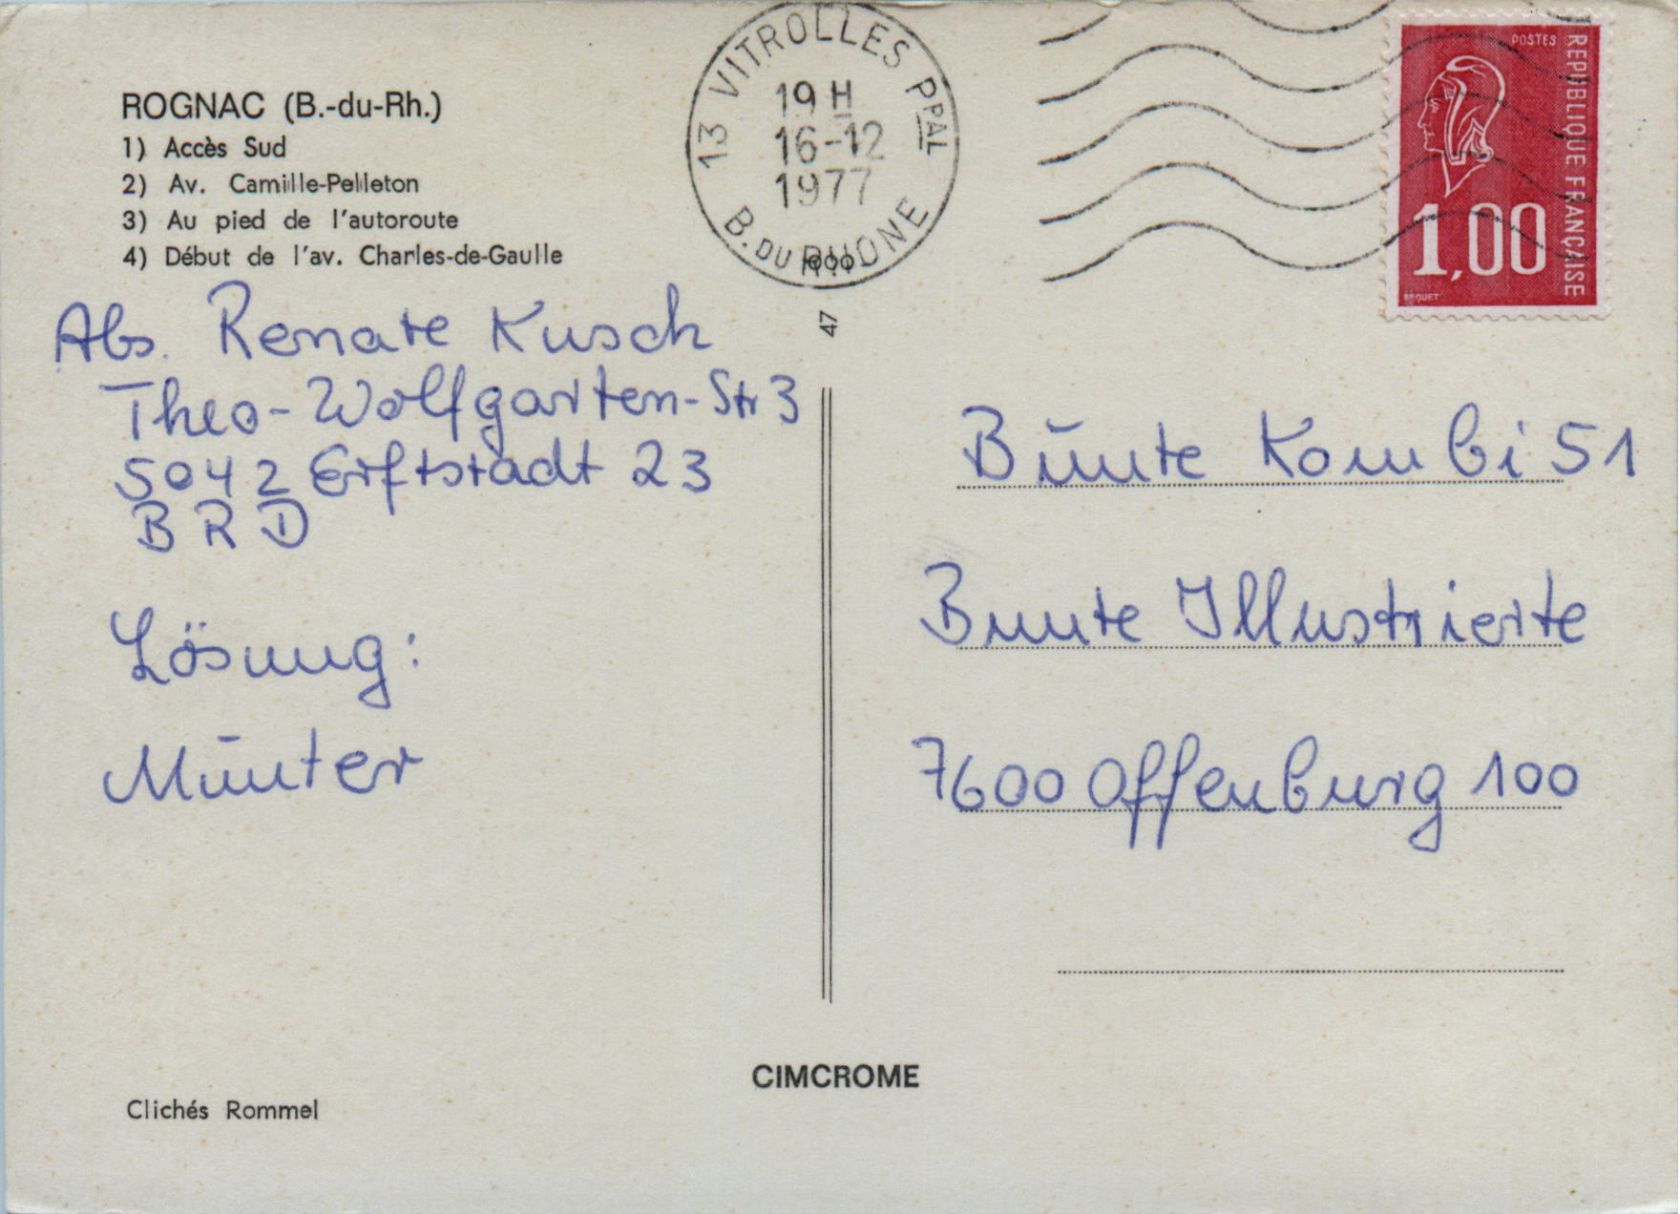 ROGNAC (B.-du-Rh.)
1) Accès Sud
2) Av. Camille-Pelleton
3) Au pied de l'autoroute
4) Début de l'av. Charles-de-Gaulle
13 VITROLLES PPAL
19 H
16-12
1977
B. DU RHONE
POSTES
REPUBLIQUE FRANÇAISE
1,00
BEQUET
Abs. Renate Kusch
Theo-Wolfgarten-Str 3
5042 Erftstadt 23
BRD
Lösung:
Münter
47
Bunte Kombi 51
Bunte Illustrierte
7600 Offenburg 100
CIMCROME
Clichés Rommel